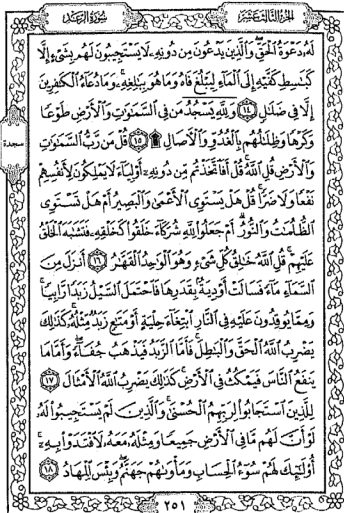 الجزء الثالث عشر
سورة الرعد
لَهُۥ دَعْوَةُ ٱلْحَقِّ وَٱلَّذِينَ يَدْعُونَ مِن دُونِهِۦ لَا يَسْتَجِيبُونَ لَهُم بِشَىْءٍ إِلَّا
كَبَٰسِطِ كَفَّيْهِ إِلَى ٱلْمَآءِ لِيَبْلُغَ فَاهُ وَمَا هُوَ بِبَٰلِغِهِۦ وَمَا دُعَآءُ ٱلْكَٰفِرِينَ
إِلَّا فِى ضَلَٰلٍ ١٤ وَلِلَّهِ يَسْجُدُ مَن فِى ٱلسَّمَٰوَٰتِ وَٱلْأَرْضِ طَوْعًا
وَكَرْهًا وَظِلَٰلُهُم بِٱلْغُدُوِّ وَٱلْءَاصَالِ ۩ ١٥ قُلْ مَن رَّبُّ ٱلسَّمَٰوَٰتِ
سجدة
وَٱلْأَرْضِ قُلِ ٱللَّهُ قُلْ أَفَٱتَّخَذْتُم مِّن دُونِهِۦٓ أَوْلِيَآءَ لَا يَمْلِكُونَ لِأَنفُسِهِمْ
نَفْعًا وَلَا ضَرًّا قُلْ هَلْ يَسْتَوِى ٱلْأَعْمَىٰ وَٱلْبَصِيرُ أَمْ هَلْ تَسْتَوِى
ٱلظُّلُمَٰتُ وَٱلنُّورُ أَمْ جَعَلُوا۟ لِلَّهِ شُرَكَآءَ خَلَقُوا۟ كَخَلْقِهِۦ فَتَشَٰبَهَ ٱلْخَلْقُ
عَلَيْهِمْ قُلِ ٱللَّهُ خَٰلِقُ كُلِّ شَىْءٍ وَهُوَ ٱلْوَٰحِدُ ٱلْقَهَّٰرُ ١٦ أَنزَلَ مِنَ
ٱلسَّمَآءِ مَآءً فَسَالَتْ أَوْدِيَةٌۢ بِقَدَرِهَا فَٱحْتَمَلَ ٱلسَّيْلُ زَبَدًا رَّابِيًا
وَمِمَّا يُوقِدُونَ عَلَيْهِ فِى ٱلنَّارِ ٱبْتِغَآءَ حِلْيَةٍ أَوْ مَتَٰعٍ زَبَدٌ مِّثْلُهُۥ كَذَٰلِكَ
يَضْرِبُ ٱللَّهُ ٱلْحَقَّ وَٱلْبَٰطِلَ فَأَمَّا ٱلزَّبَدُ فَيَذْهَبُ جُفَآءً وَأَمَّا مَا
يَنفَعُ ٱلنَّاسَ فَيَمْكُثُ فِى ٱلْأَرْضِ كَذَٰلِكَ يَضْرِبُ ٱللَّهُ ٱلْأَمْثَالَ ١٧
لِلَّذِينَ ٱسْتَجَابُوا۟ لِرَبِّهِمُ ٱلْحُسْنَىٰ وَٱلَّذِينَ لَمْ يَسْتَجِيبُوا۟ لَهُۥ
لَوْ أَنَّ لَهُم مَّا فِى ٱلْأَرْضِ جَمِيعًا وَمِثْلَهُۥ مَعَهُۥ لَٱفْتَدَوْا۟ بِهِۦٓ
أُو۟لَٰٓئِكَ لَهُمْ سُوٓءُ ٱلْحِسَابِ وَمَأْوَىٰهُمْ جَهَنَّمُ وَبِئْسَ ٱلْمِهَادُ ١٨
٢٥١